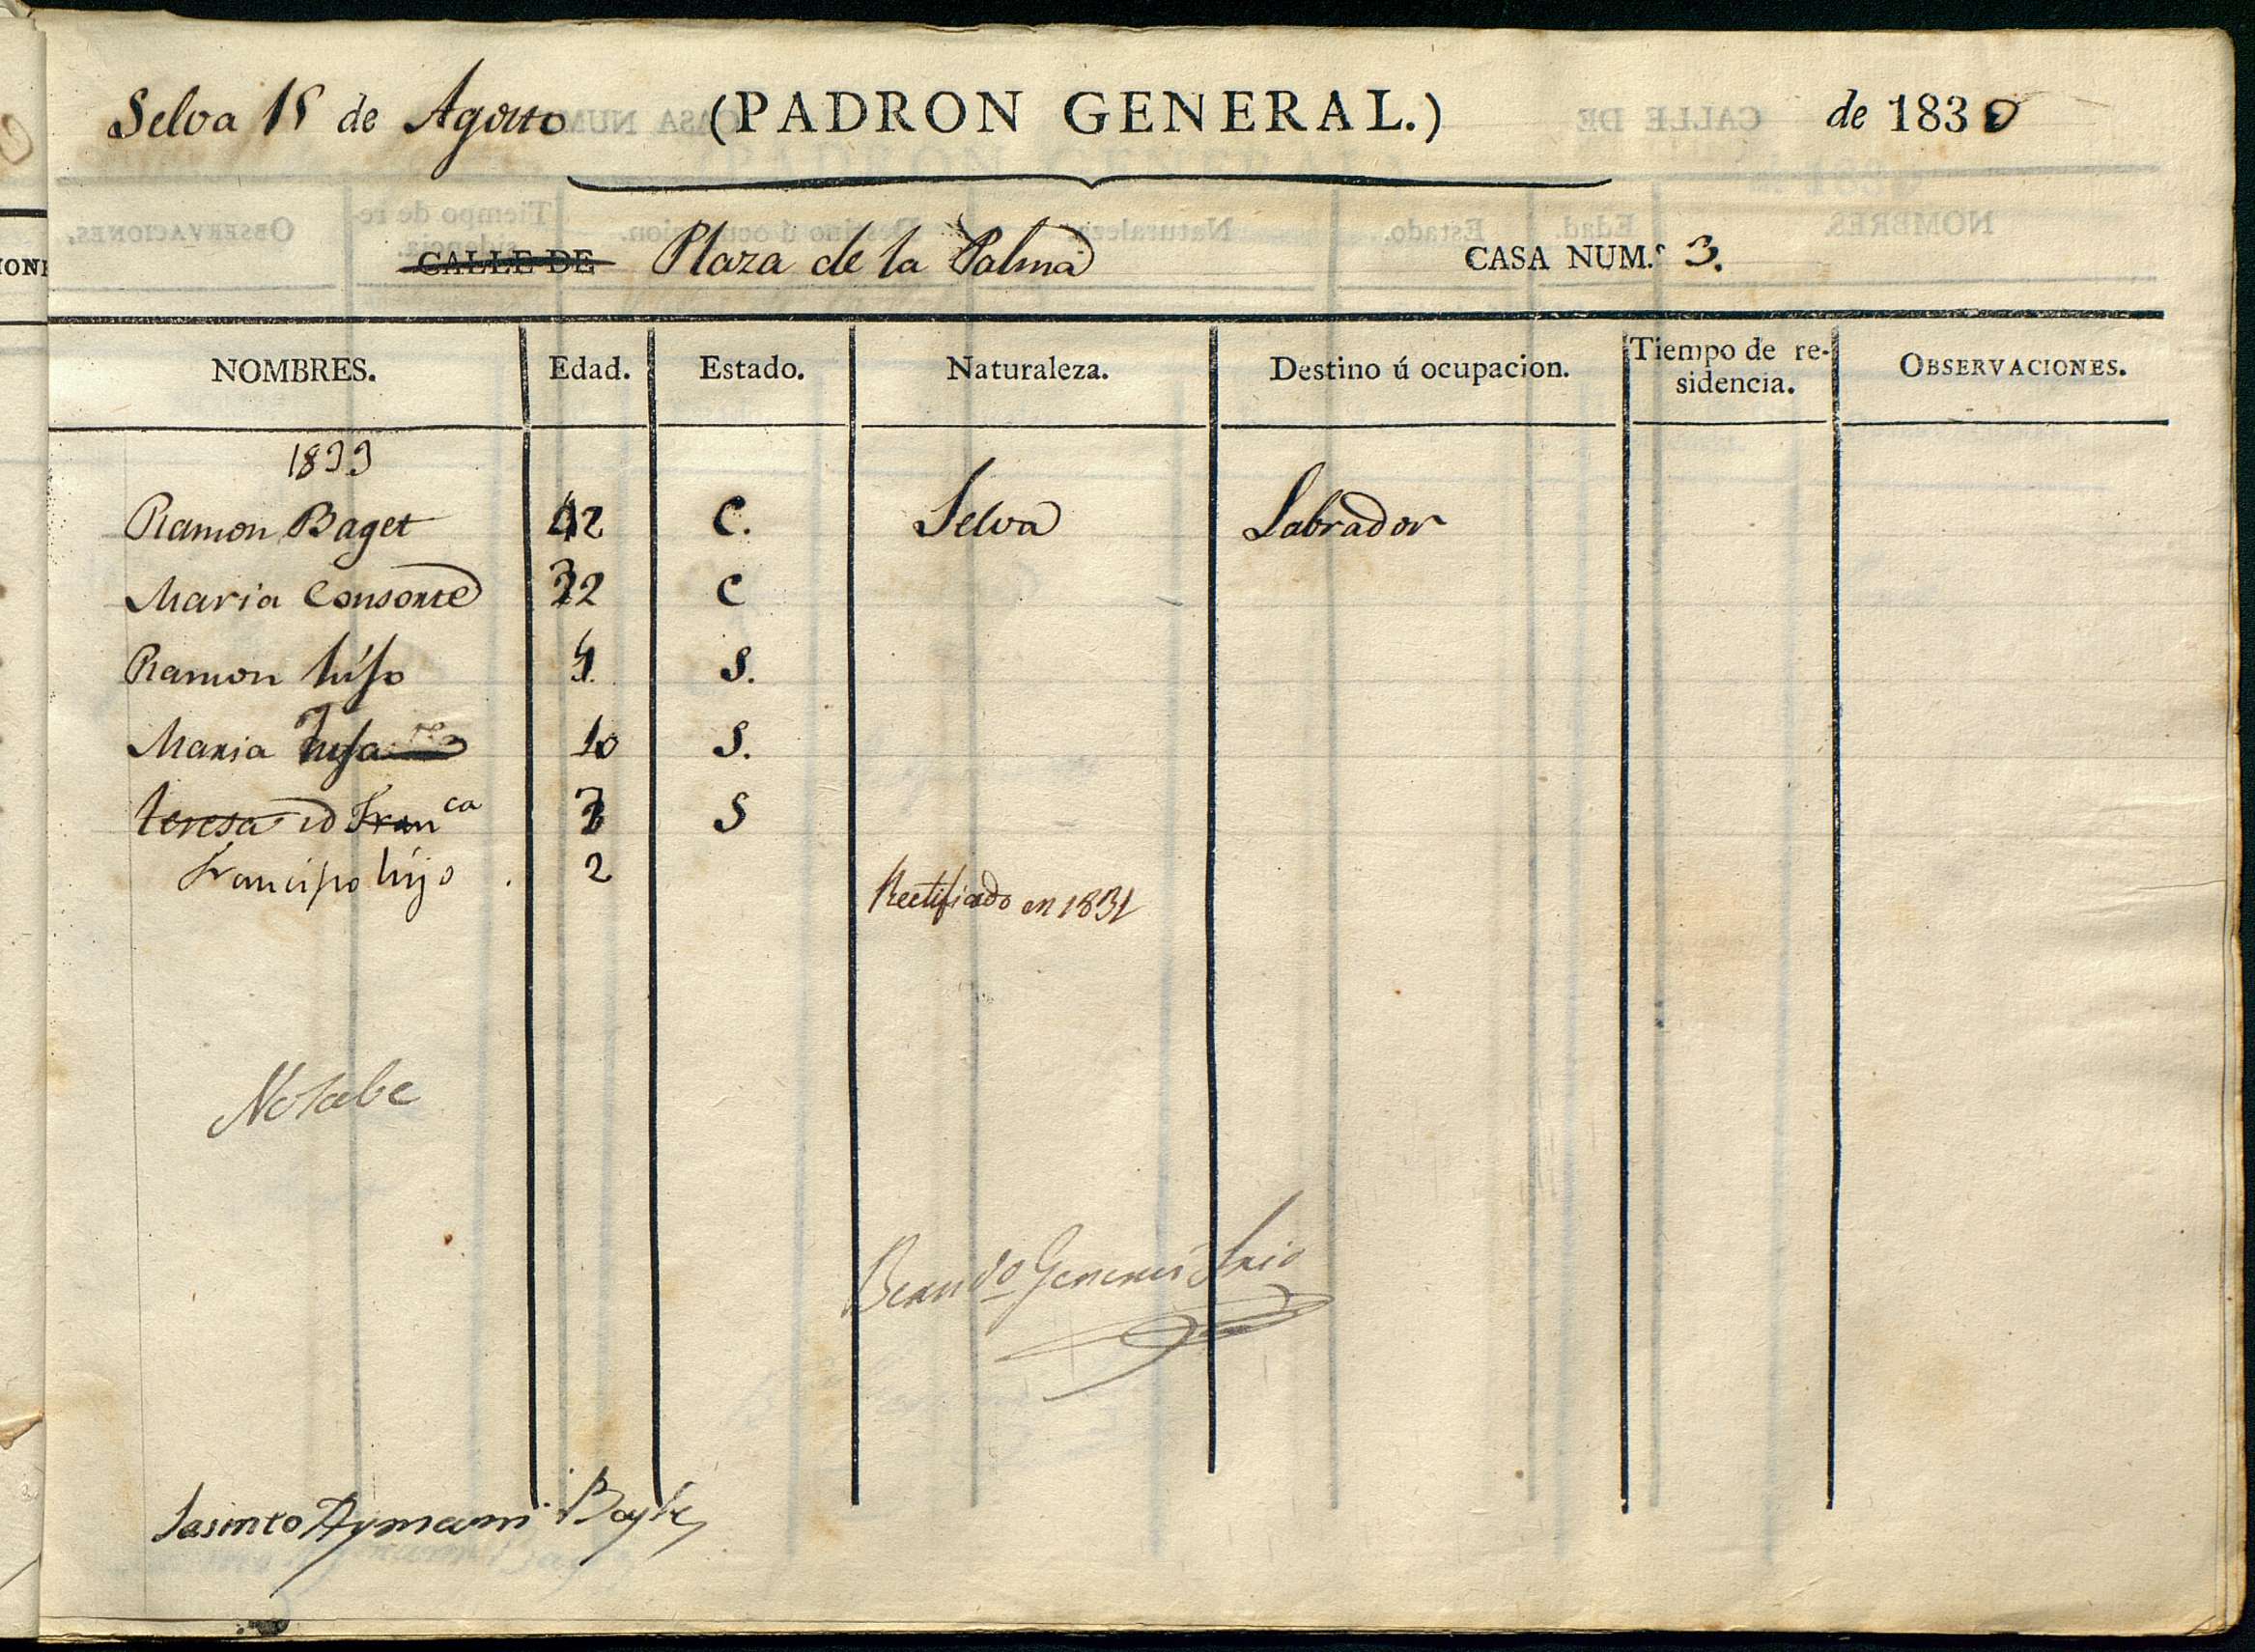 Selva 15 de Agosto (PADRON GENERAL.) de 1830
CALLE DE Plaza de la Palma CASA NUM.º 3.
NOMBRES. Edad. Estado. Naturaleza. Destino ú ocupacion. Tiempo de re-
sidencia. OBSERVACIONES.
1833
Ramon Baget 42 C. Selva Labrador
Maria Consonte 32 C
Ramon hijo S.
Maria hija 10 S.
teresa id Fran ca 3 S
Francisco hijo . 2
Rectificado en 1831
Notabe
Jasinto Aymami Bayle